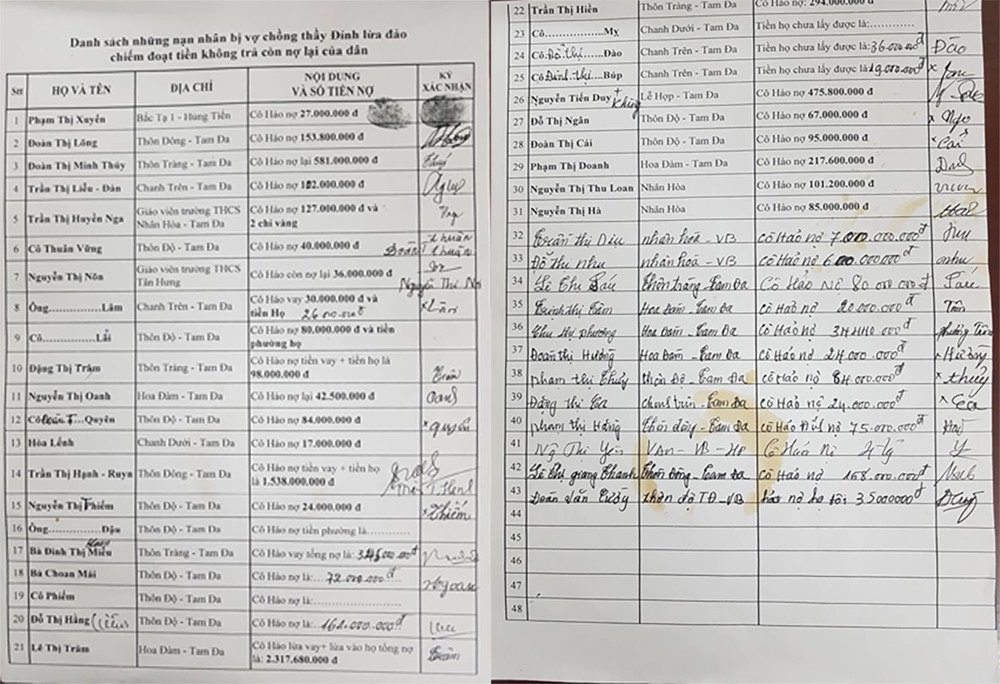 Danh sách những nạn nhân bị vợ chồng thầy Đính lừa đảo
chiếm đoạt tiền không trả còn nợ lại của dân
Stt HỌ VÀ TÊN ĐỊA CHỈ NỘI DUNG VÀ SỐ TIỀN NỢ KÝ XÁC NHẬN
1 Phạm Thị Xuyến Bắc Tạ 1 - Hùng Tiến Cô Hảo nợ 27.000.000 đ
2 Đoàn Thị Lông Thôn Đông - Tam Đa Cô Hảo nợ 153.800.000 đ
3 Đoàn Thị Minh Thúy Thôn Tràng - Tam Đa Cô Hảo nợ lại 581.000.000 đ Thuý
4 Trần Thị Liễu - Đán Chanh Trên - Tam Đa Cô Hảo nợ 102.000.000 đ
5 Trần Thị Huyền Nga Giáo viên trường THCS Cô Hảo nợ 127.000.000 đ và
Nhân Hòa - Tam Đa 2 chỉ vàng Nga
6 Cô Thuân Vững Thôn Độ - Tam Đa Cô Hảo nợ 40.000.000 đ Đoàn T Thuân
7 Nguyễn Thị Nôn Giáo viên trường THCS Cô Hảo còn nợ lại 36.000.000 đ
Tân Hưng Nguyễn Thị
8 Ông................Lâm Chanh Trên - Tam Đa Cô Hảo vay 30.000.000 đ và
tiền Họ 26.000.000đ × Lâm
9 Cô...................Lãi Thôn Độ - Tam Đa Cô Hảo nợ 80.000.000 đ và tiền
phường họ
10 Đặng Thị Trâm Thôn Tràng - Tam Đa Cô Hảo nợ tiền vay + tiền họ là
98.000.000 đ
11 Nguyễn Thị Oanh Hoa Đàm - Tam Đa Cô Hảo nợ lại 42.500.000 đ Oanh
12 Cô T....Quyên Thôn Độ - Tam Đa Cô Hảo nợ 84.000.000 đ × Quyên
13 Hòa Lềnh Chanh Dưới - Tam Đa Cô Hảo nợ 17.000.000 đ
14 Trần Thị Hạnh - Ruyn Thôn Đông - Tam Đa Cô Hảo nợ tiền vay + tiền họ
là 1.538.000.000 đ
15 Nguyễn Thị Thiềm Thôn Độ - Tam Đa Cô Hảo nợ 24.000.000 đ × Thiềm
16 Ông................Đậu Thôn Độ - Tam Đa Cô Hảo nợ tiền phường là......
17 Bà Đinh Thị Miều Thôn Tràng - Tam Đa Cô Hảo vay tổng nợ là: .000.000đ
18 Bà Choan Mái Thôn Độ - Tam Đa Cô Hảo nợ là:....72.000.000đ
19 Cô Phiếm Thôn Độ - Tam Đa Cô Hảo nợ là:..........................
20 Đỗ Thị Hằng Thôn Độ - Tam Đa Cô Hảo nợ là:...161.000.000đ
21 Lê Thị Trâm Hoa Đàm - Tam Đa Cô Hảo lừa vay+ lừa vào họ tổng nợ
là: 2.317.680.000 đ
22 Trần Thị Hiền Thôn Tràng - Tam Đa Cô Hảo nợ: 294.000.000 đ
23 Cô................Mỵ Chanh Dưới - Tam Đa Tiền họ chưa lấy được là:............
24 Cô Đỗ Thị.....Đào Chanh Trên - Tam Đa Tiền họ chưa lấy được là:36.000.000đ Đào
25 Cô Đinh Thị....Búp Chanh Trên - Tam Đa Tiền họ chưa lấy được là:19.000.000đ
26 Nguyễn Tiến Duy + Lễ Hợp - Tam Đa Cô Hảo nợ 475.800.000 đ
27 Đỗ Thị Ngân Thôn Độ - Tam Đa Cô Hảo nợ 67.000.000 đ
28 Đoàn Thị Cái Thôn Độ - Tam Đa Cô Hảo nợ 95.000.000 đ × Cái
29 Phạm Thị Doanh Hoa Đàm - Tam Đa Cô Hảo nợ 217.600.000 đ
30 Nguyễn Thị Thu Loan Nhân Hòa Cô Hảo nợ 101.200.000 đ
31 Nguyễn Thị Hà Nhân Hòa Cô Hảo nợ 85.000.000 đ
32 thị Dịu nhân hoà - VB cô Hảo nợ 7.000.000.000đ
33 Đỗ thị như nhân hoà - VB cô Hảo nợ 6.000.000.000đ như
34 Lê Thị Sáu Thôn tràng - Tam Đa Cô Hảo Nợ 80 000 000đ Sáu
35 Trịnh thị Tâm Hoa Đàm - Tam Đa cô Hảo nợ 20.000.000đ Tâm
36 Chu thị phương Hoa Đàm - Tam Đa cô Hảo nợ 000đ
37 Đoàn thị Hường Hoa Đàm - Tam Đa cô Hảo nợ 24.000.000đ × Hường
38 phạm thị Thủy thôn Độ - Tam Đa cô Hảo nợ 84.000.000đ × thủy
39 Đặng thị - Tam Đa cô Hảo nợ 24.000.000đ
40 phạm thị Hằng Thôn đông - Tam Đa cô Hảo Đính nợ 75.000.000đ
41 Ngô Thị Yên - VB - HP Cô Nợ 4 tỷ Y
42 Lê Thị giang Thanh Thôn Đông - Tam Đa cô Hảo nợ 168.000.000đ
43 Đoàn văn thôn độ TĐ - VB hảo nợ họ tôi 35000000đ
44
45
46
47
48